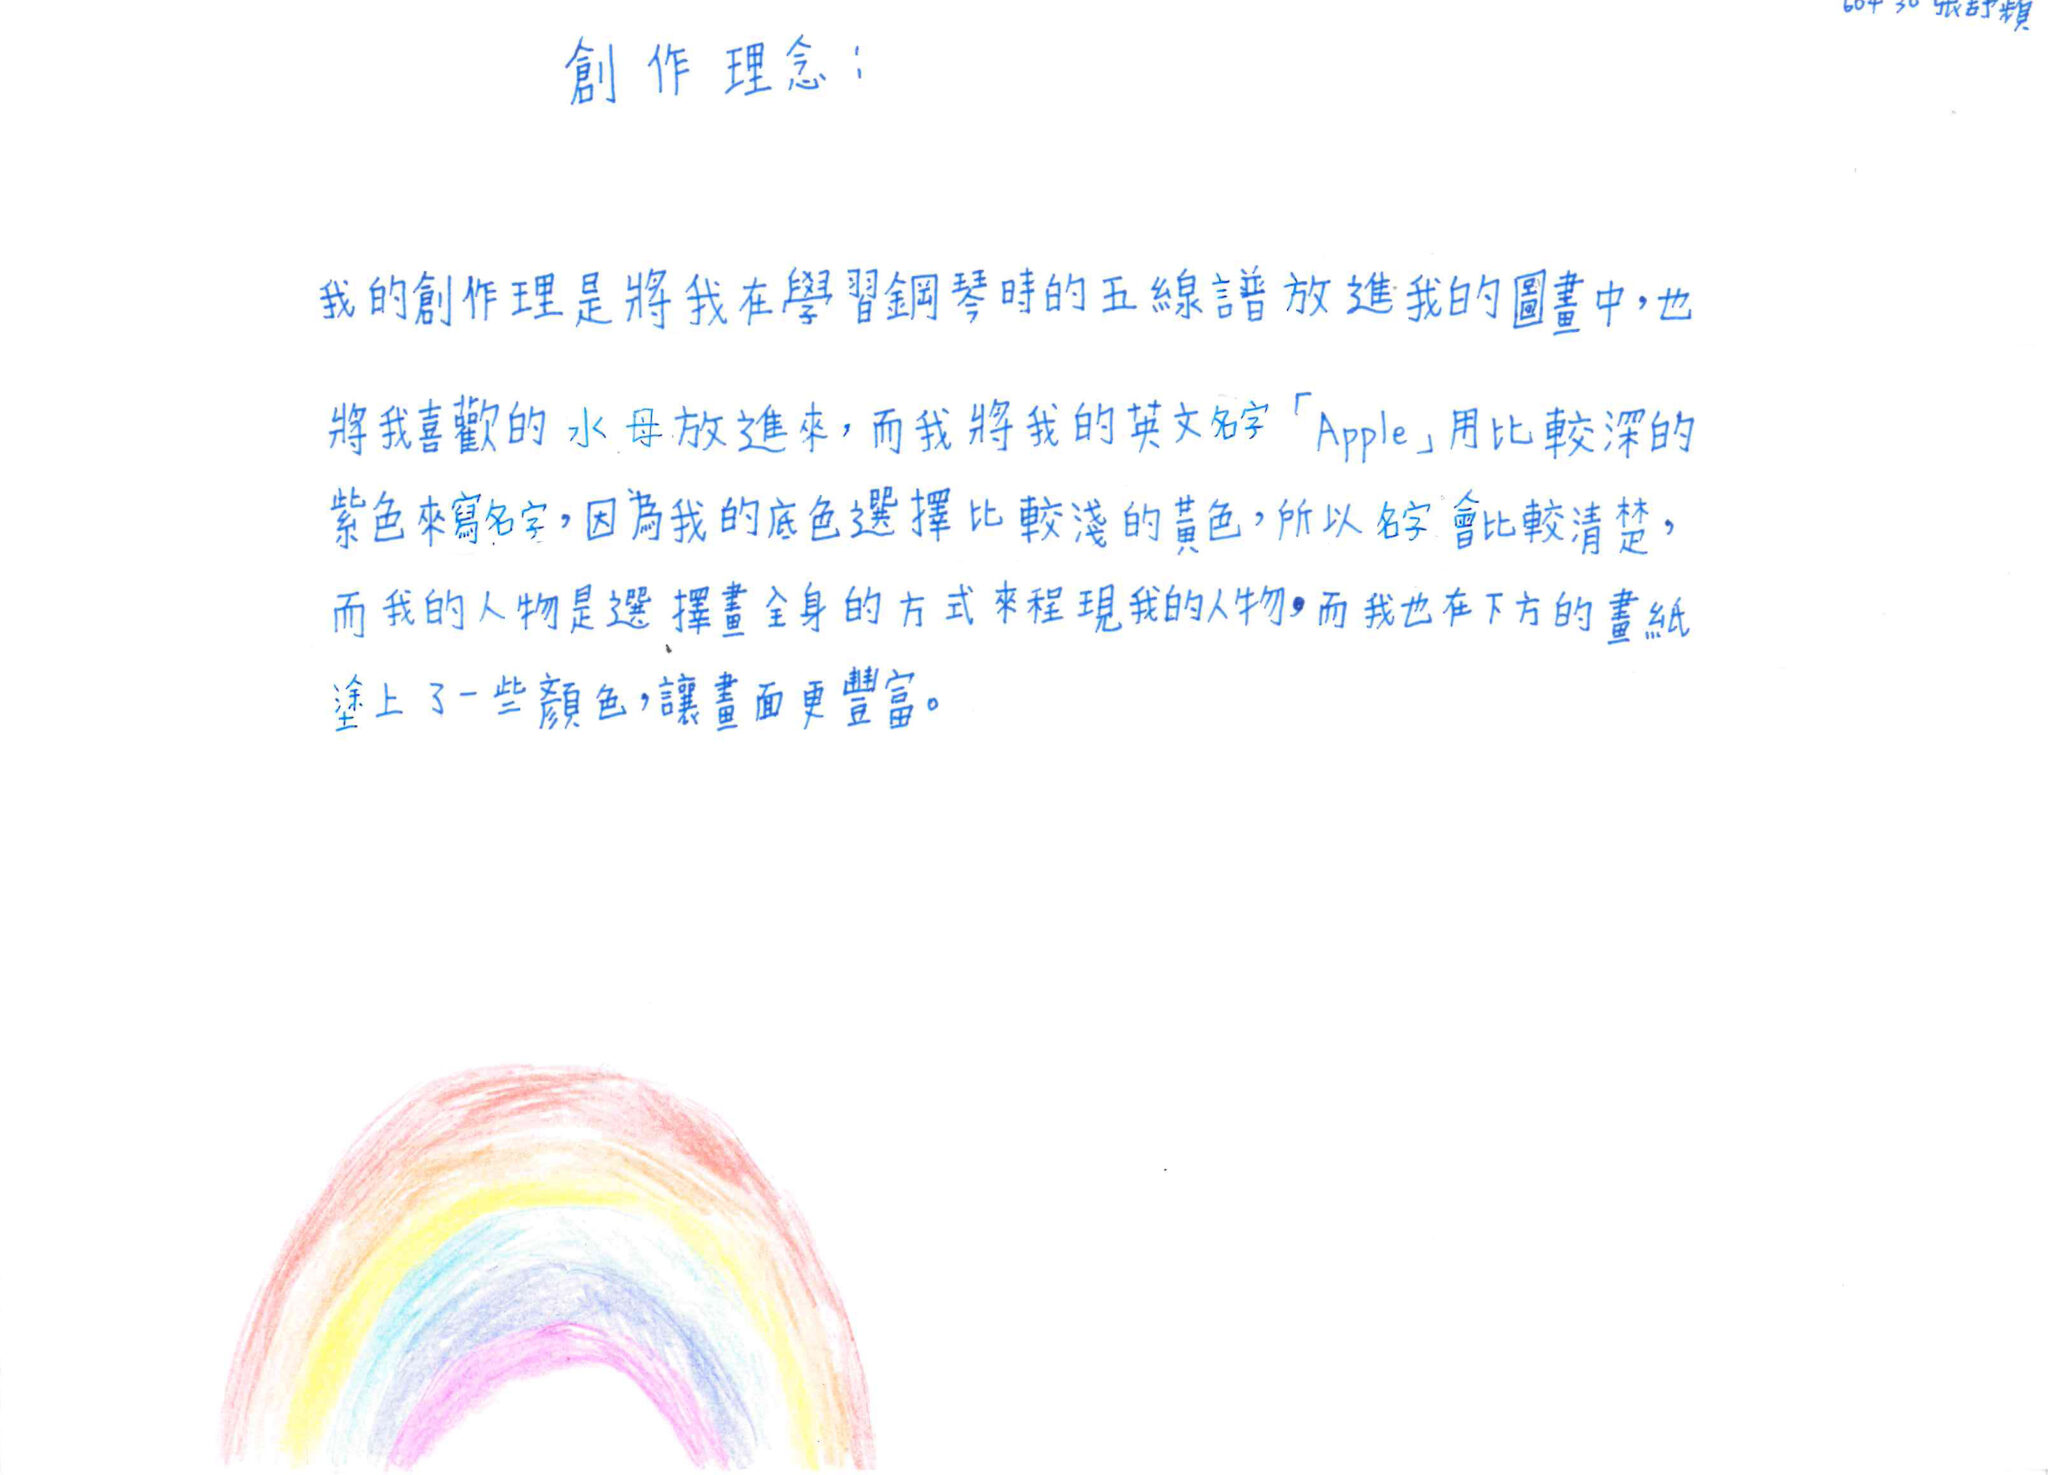 604 30 張舒蘋
創作理念：
我的創作理是將我在學習鋼琴時的五線譜放進我的圖畫中，也
將我喜歡的水母放進來，而我將我的英文名字「Apple」用比較深的
紫色來寫名字，因為我的底色選擇比較淺的黃色，所以名字會比較清楚，
而我的人物是選擇畫全身的方式來程現我的人物，而我也在下方的畫紙
塗上了一些顏色，讓畫面更豐富。